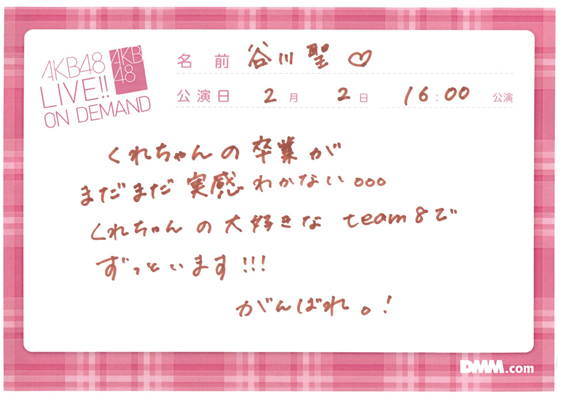 AKB48
LIVE!!
ON DEMAND
AKB
48
名前 谷川聖♡
公演日 2月 2日 16:00 公演
くれちゃんの卒業が
まだまだ実感わかない。。。
くれちゃんの大好きな team8で
ずっといます!!!
がんばれ。!
DMM.com